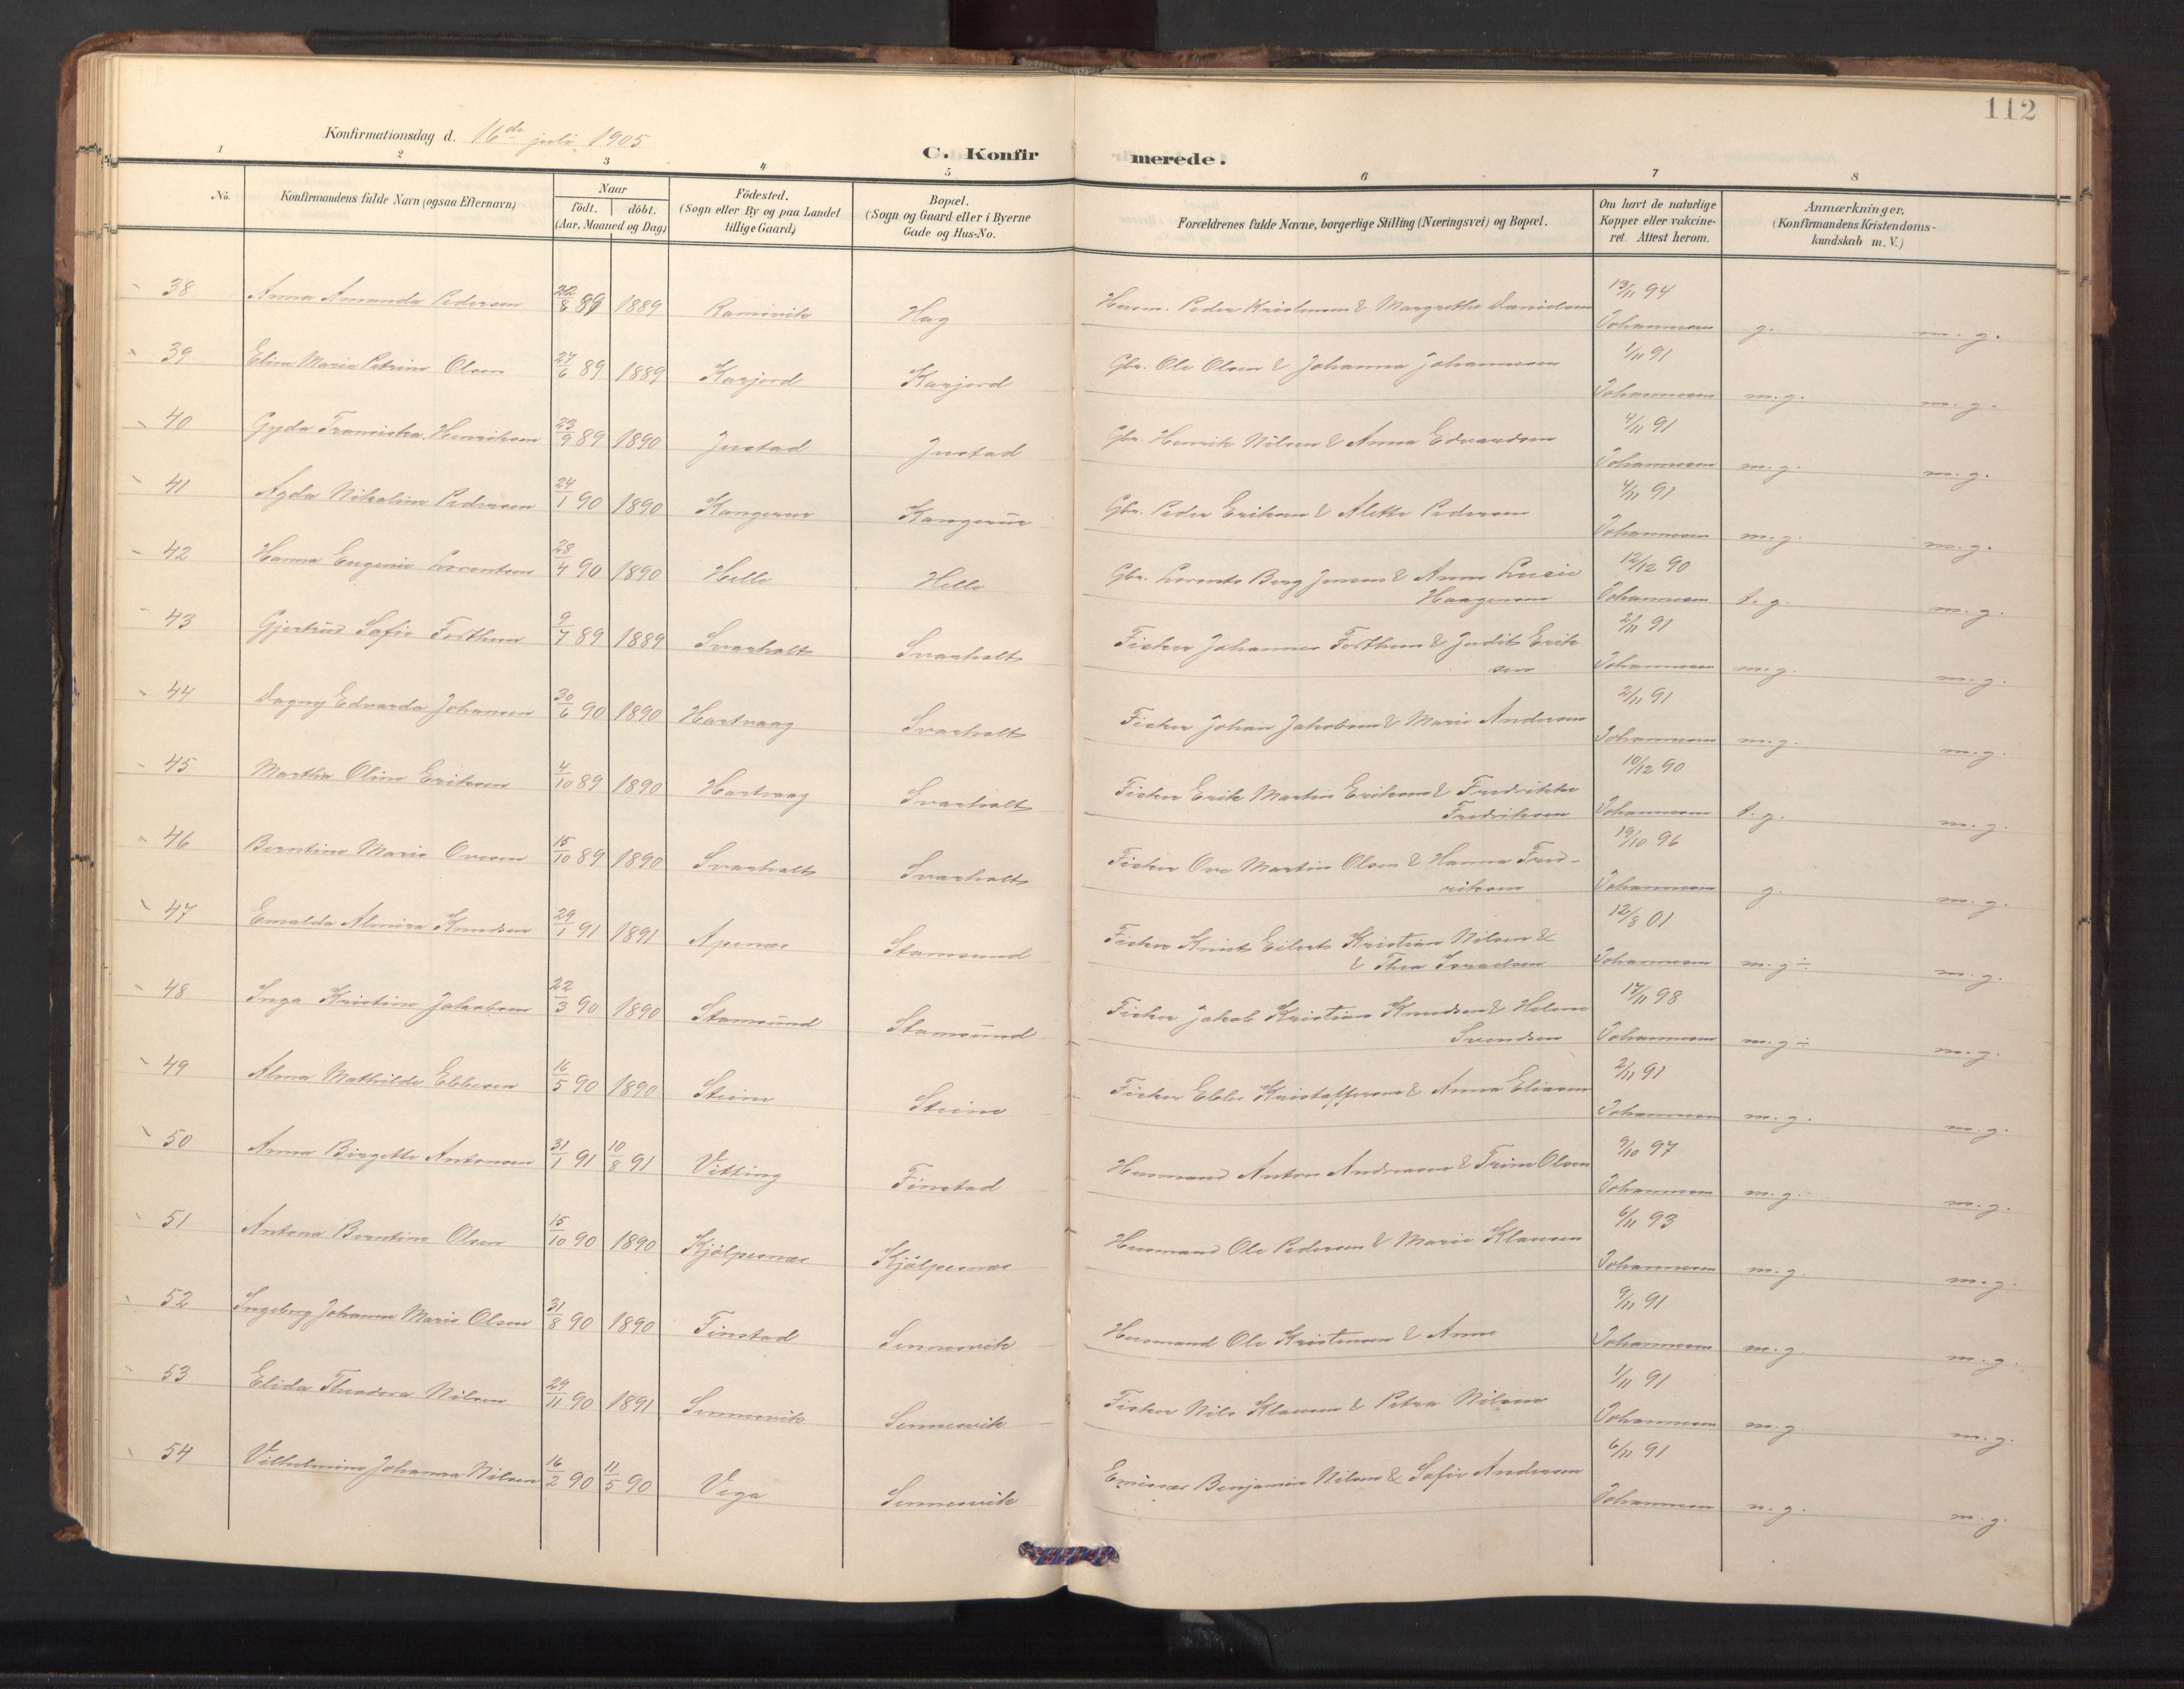 112
Konfirmationsdag d. 16de juli 1905
C. Konfirmerede.
1 2 3 4 5 6 7 8
No. Konfirmandens fulde Navn (ogsaa Efternavn) Naar födt. döbt. (Aar, Maaned og Dag) Födested. (Sogn eller By og paa Landet tillige Gaard) Bopæl. (Sogn og Gaard eller i Byerne Gade og Hus-No. Forældrenes fulde Navne, borgerlige Stilling (Næringsvei) og Bopæl. Om havt de naturlige Kopper eller vakcineret. Attest herom. Anmærkninger. (Konfirmandens Kristendomskundskab m. V.)
38 Anna Amanda Pedersen 89 1889 Ramsvik Hag Husm. Peder Kristensen & Margrethe Danielsen 13/11 94
Johannesen g. m.g.
39 Elina Marie Petrine Olsen 27/6 89 1889 Karjord Karjord Gbr. Ole Olsen & Johanna Johannesen 1/11 91
Johannesen m.g. m.g.
40 Gyda Franciska Henriksen 23/9 89 1890 Justad Justad Gbr. Henrik Nilsen & Anna Edvardsen 4/11 91
Johannesen m.g. m.g.
41 Agda Nikoline Pedersen 24/1 90 1890 Kangerur Kangerur Gbr. Peder Eriksen & Alette Pedersen 4/11 91
Johannesen m.g. m.g.
42 Hanna Eugenie Lorentsen 28/4 90 1890 Helle Helle Gbr. Lorents Berg Jensen & Anna Lucie 12/12 90
Haagensen Johannesen t.g. m.g.
43 Gjertrud Sofie Forthun 9/7 89 1889 Svarholt Svarholt Fisker Johannes Forthun & Judit Erik 2/11 91
sen Johannesen m.g. m.g.
44 Dagny Edvarda Johansen 30/6 90 1890 Hartvaag Svarholt Fisker Johan Jakobsen & Marie Andersen 2/11 91
Johannesen m.g. m.g.
45 Martha Oline Eriksen 4/10 89 1890 Hartvaag Svarholt Fisker Erik Martin Eriksen & Fredrikke 10/12 90
Fredriksen Johannesen t.g. m.g.
46 Berntine Marie Ovesen 15/10 89 1890 Svarholt Svarholt Fisker Ove Martin Olsen & Hanna Fred- 19/10 96
riksen Johannesen g. m.g.
47 Emalda Almira Knudsen 29/1 91 1891 Apenes Stamsund Fisker Knut Eilert Kristian Nilsen & 12/8 01
& Thea Israelsen Johannesen m.g÷ m.g.
48 Inga Kristine Jakobsen 22/3 90 1890 Stamsund Stamsund Fisker Jakob Kristian Knudsen & Helene 17/11 98
Svendsen Johannesen m.g÷ m.g.
49 Alma Mathilde Ebbesen 16/5 90 1890 Steine Steine Fisker Ebbe Kristoffersen & Anna Eliasen 2/11 91
Johannesen m.g. m.g.
50 Anna Birgette Antonsen 31/1 91 10/8 91 Vitting Finstad Husmand Anton Andreasen & Trine Olsen 9/10 97
Johannesen m.g. m.g.
51 Antona Berntine Olsen 15/10 90 1890 Kjölpesnes Kjölpesnes Husmand Ole Pedersen & Marie Klausen 6/11 93
Johannesen m.g. m.g.
52 Ingeborg Johanne Marie Olsen 31/8 90 1890 Finstad Sennesvik Husmand Ole Kristensen & Anne 9/11 91
Johannesen m.g. m.g.
53 Elida Theodora Nilsen 29/11 90 1891 Sennesvik Sennesvik Fisker Nils Klausen & Petra Nilsen 1/11 91
Johannesen m.g. m.g.
54 Vilhelmine Johanna Nilsen 16/2 90 11/5 90 Vega Sennesvik Emissær Benjamin Nilsen & Sofie Andersen 6/11 91
Johannesen m.g. m.g.